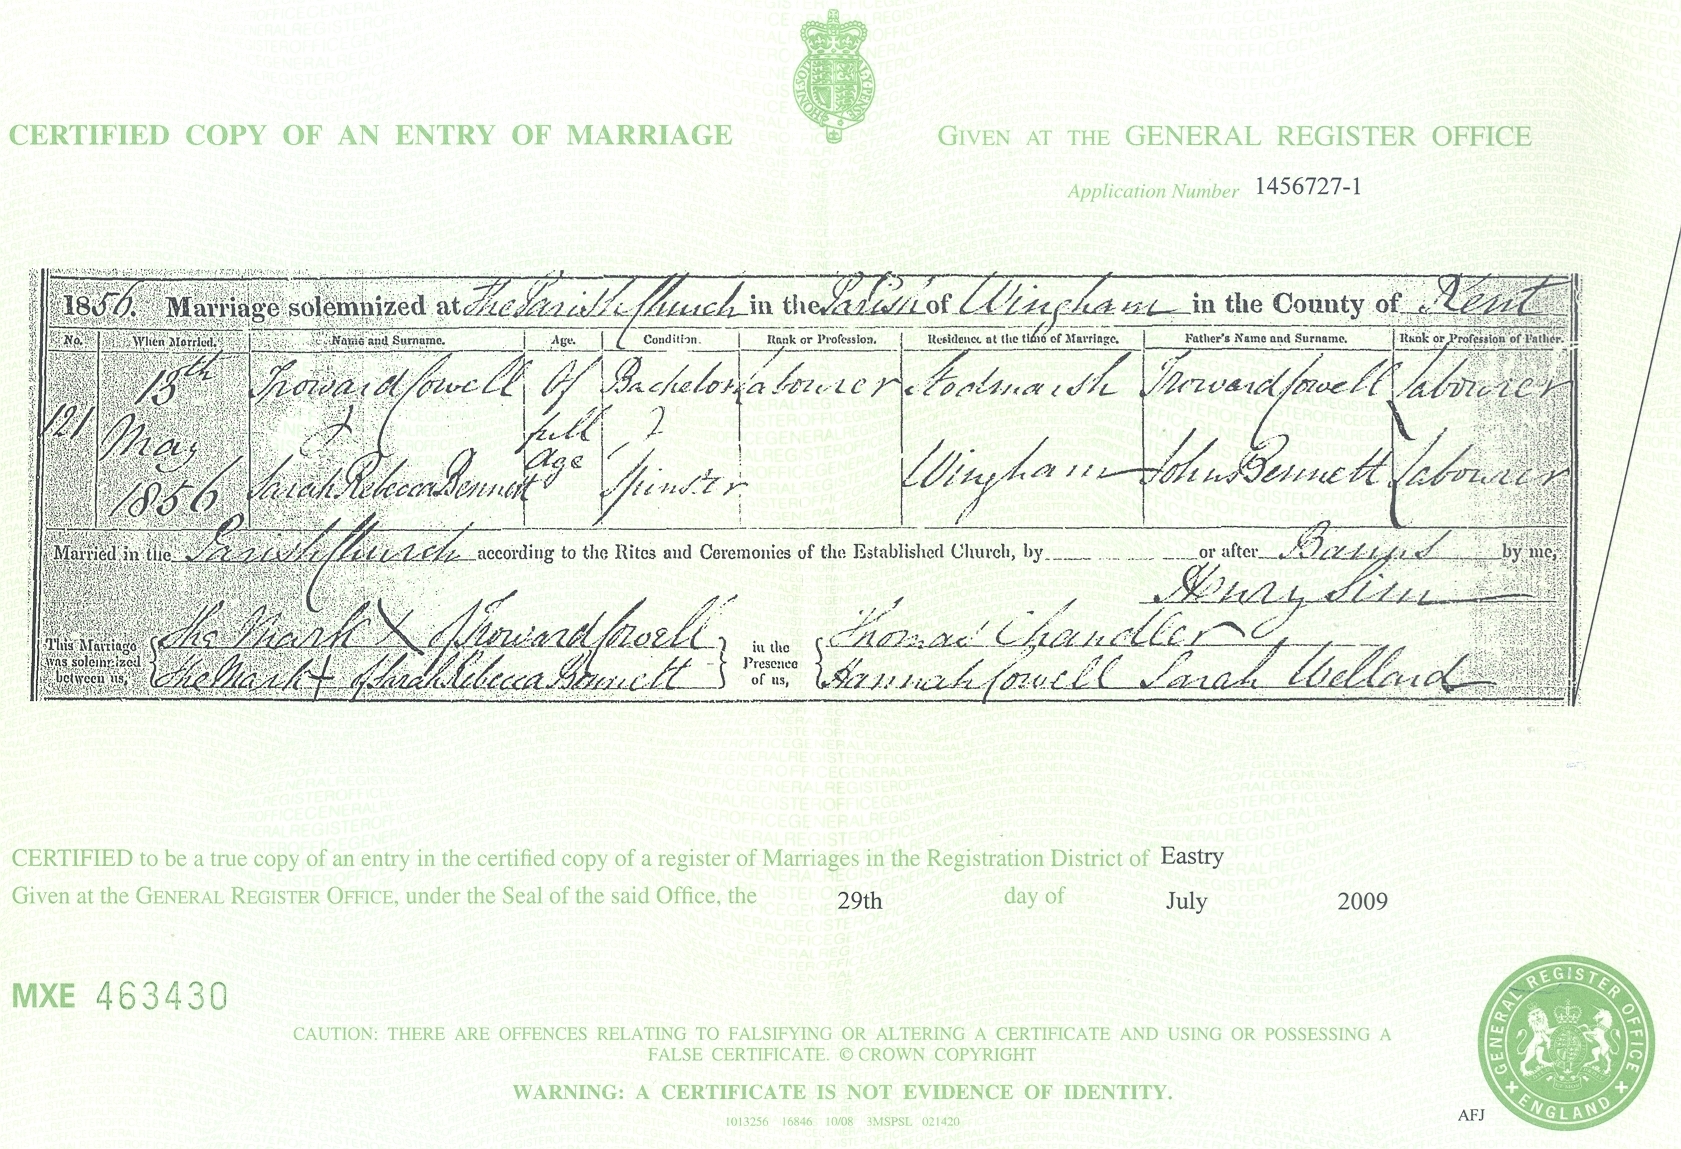 CERTIFIED COPY OF AN ENTRY OF MARRIAGE
GIVEN AT THE GENERAL REGISTER OFFICE
Application Number 1456727-1
1856. Marriage solemnized at The Parish Church in the Parish of Wingham in the County of Kent
No. When Married. Name and Surname. Age. Condition. Rank or Profession. Residence at the time of Marriage. Father's Name and Surname. Rank or Profession of Father.
121 13th May 1856
Troward Cowell Of full age Bachelor Labourer Stodmarsh Troward Cowell Labourer
Sarah Rebecca Bennett Spinster Wingham John Bennett Labourer
Married in the Parish Church according to the Rites and Ceremonies of the Established Church, by or after Banns by me,
Henry Sim
This Marriage was solemnized between us,
The Mark X of Troward Cowell
The Mark + of Sarah Rebecca Bennett
in the Presence of us,
Thomas Chandler
Hannah Cowell Sarah Wellard
CERTIFIED to be a true copy of an entry in the certified copy of a register of Marriages in the Registration District of Eastry
Given at the GENERAL REGISTER OFFICE, under the Seal of the said Office, the 29th day of July 2009
MXE 463430
CAUTION: THERE ARE OFFENCES RELATING TO FALSIFYING OR ALTERING A CERTIFICATE AND USING OR POSSESSING A
FALSE CERTIFICATE. © CROWN COPYRIGHT
WARNING: A CERTIFICATE IS NOT EVIDENCE OF IDENTITY.
1013256 16846 10/08 3MSPSL 021420
AFJ
GENERAL REGISTER OFFICE
ENGLAND